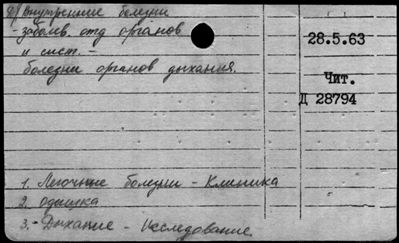 8) Внутренние болезни
- заболев. отд. органов
и сист. -
болезни органов дыхания.
28.5.63
Чит.
Д 28794
1. Легочные болезни - Клиника
2. одышка
3. - Дыхание - Исследование.